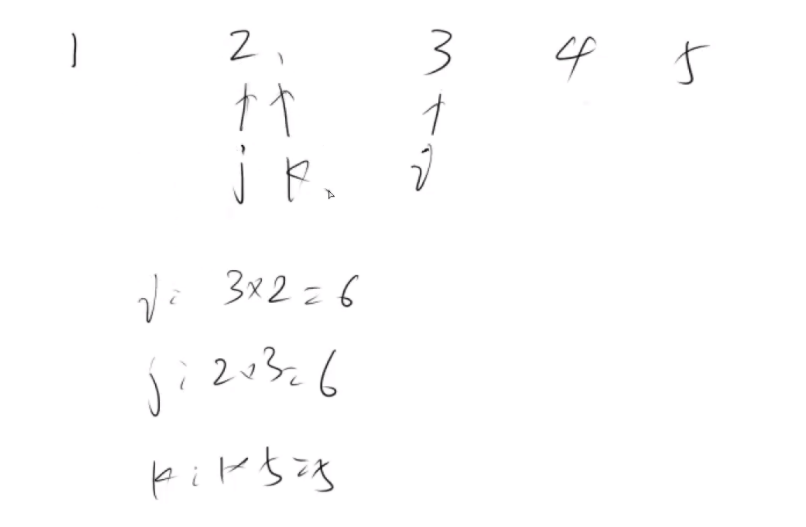 1 2 3 4 5
j k i
i: 3×2=6
j: 2×3=6
k: 1×5=5